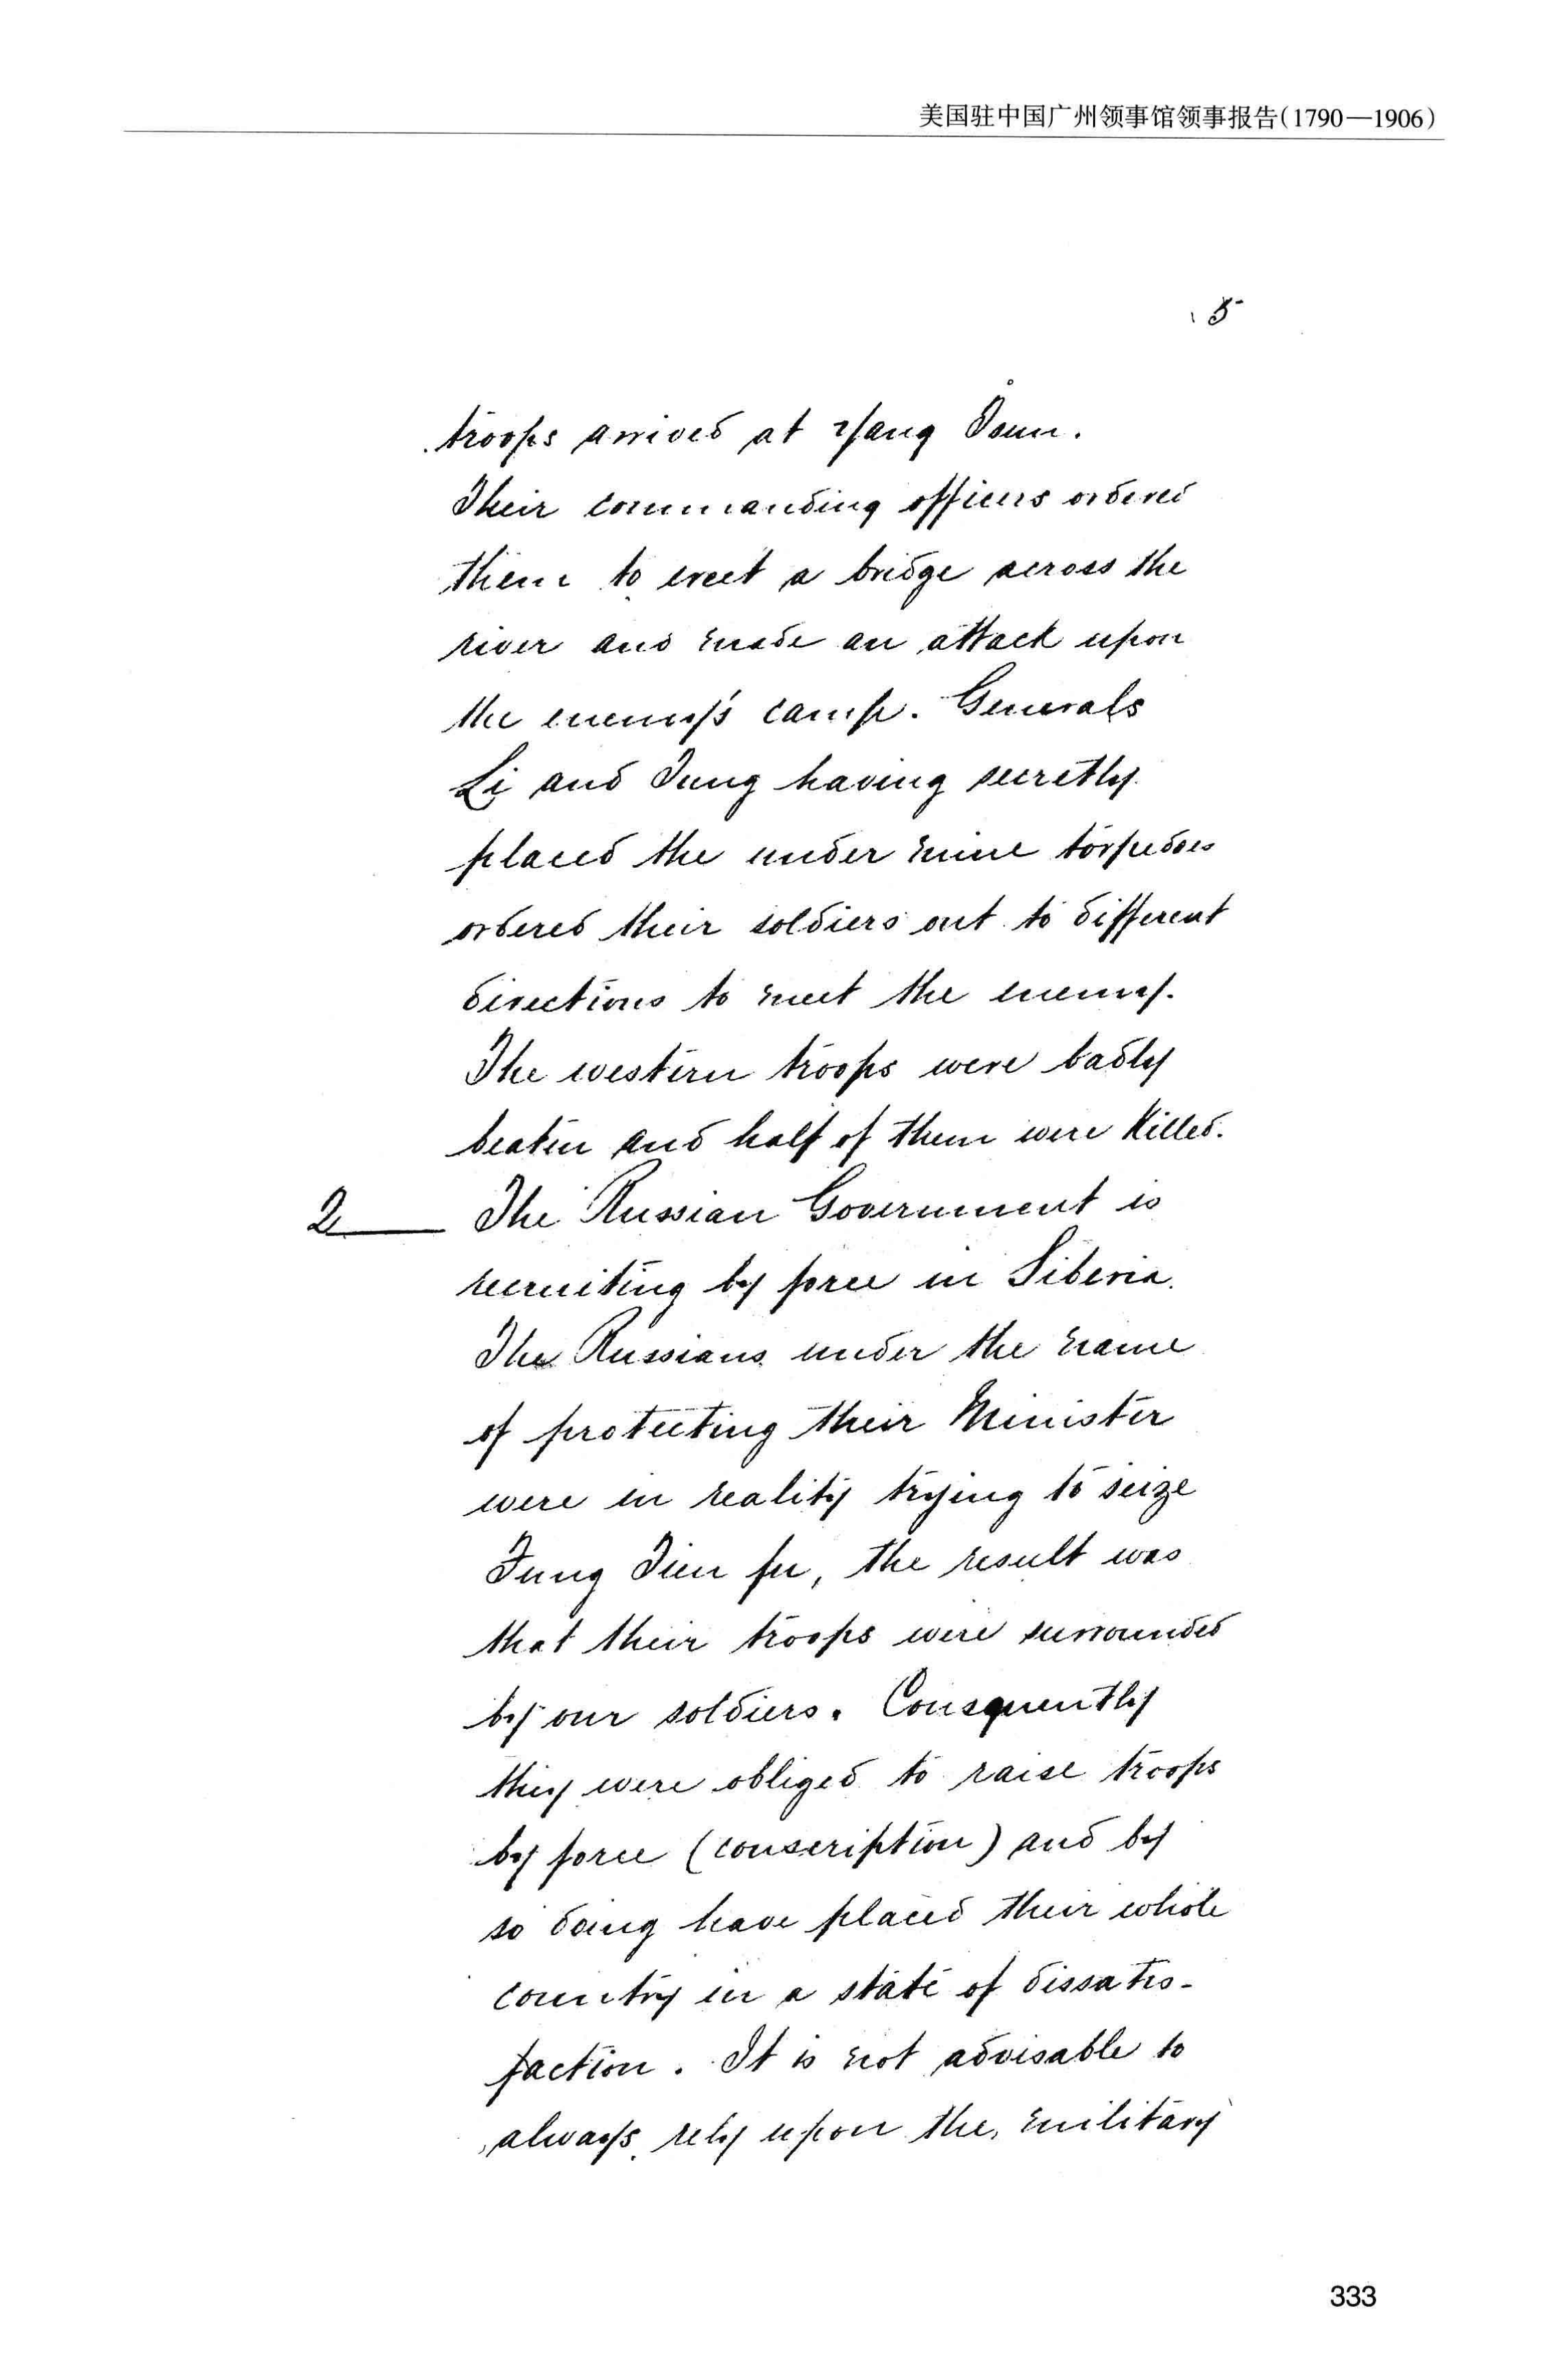 美国驻中国广州领事馆领事报告(1790—1906)
5
troops arrived at Yang Tsun.
Their commanding officers ordered
them to erect a bridge across the
river and made an attack upon
the enemy's camp. Generals
Li and Tung having secretly
placed the under mine torpedoes
ordered their soldiers out to different
directions to meet the enemy.
The western troops were badly
beaten and half of them were killed.
2 The Russian Government is
recruiting by force in Siberia.
The Russians under the name
of protecting their Minister
were in reality trying to seize
Fung Tien fu, the result was
that their troops were surrounded
by our soldiers. Consquently
they were obliged to raise troops
by force (conscription) and by
so doing have placed their whole
country in a state of dissatis-
faction. It is not advisable to
always rely upon the military
333